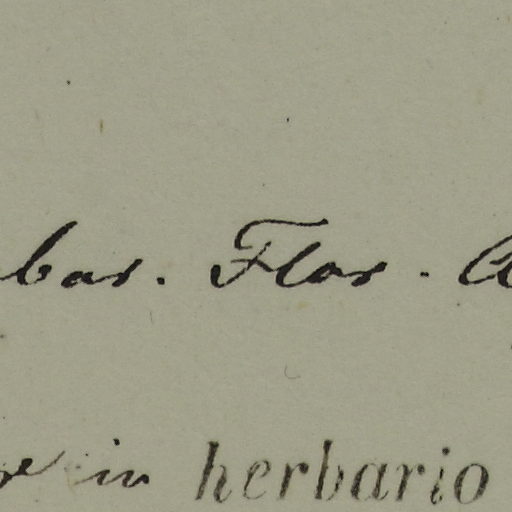 bar. Flor.
in herbario